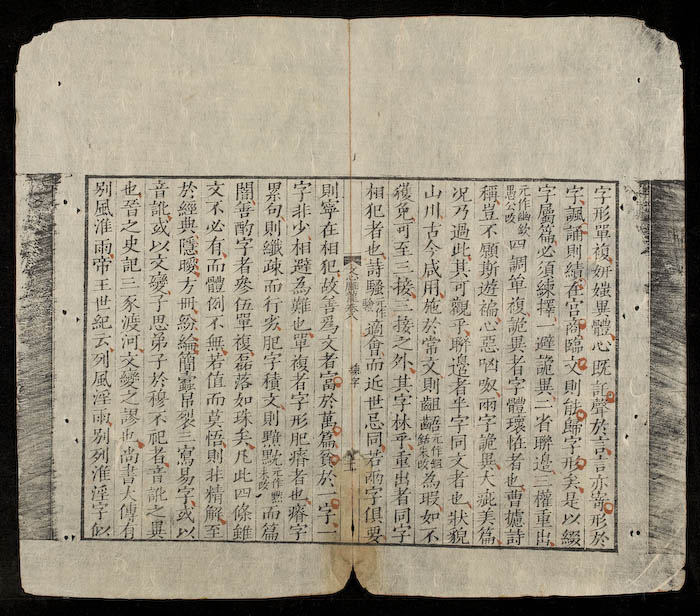 字形單複妍媸異體心既託聲於言言亦寄形於
字諷誦則績在宮商臨文則能歸字形矣是以綴
字屬篇必須練擇一避詭異二省聯邊三權重出
四調單複詭異者字體瓌怪者也曹攄詩
稱豈不願斯遊褊心惡㕳呶兩字詭異大疵美篇
况乃過此其可觀乎聯邊者半字同文者也狀貌
山川古今咸用施於常文則齟齬為瑕如不
獲免可至三接三接之外其字林乎重出者同字
相犯者也詩騷元作驗適會而近世忌同若兩字俱要
文心雕龍卷八
練字
則寧在相犯故善為文者富於萬篇貧於一字一
字非少相避為難也單複者字形肥瘠者也瘠字
累句則纖疎而行劣肥字積文則黯黕而篇
闇善酌字者參伍單複磊落如珠矣凡此四條雖
文不必有而體例不無若值而莫悟則非精解至
於經典隱曖方冊紛綸簡蠹帛裂三寫易字或以
音訛或以文變子思弟子於穆不祀者音訛之異
也晉之史記三豕渡河文變之謬也尚書大傳有
別風淮雨帝王世紀云列風淫雨別列淮淫字似